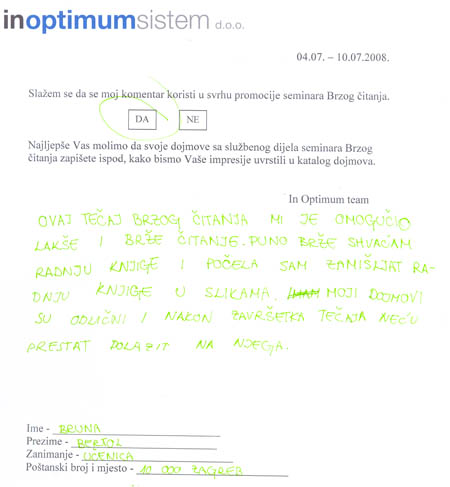 inoptimumsistem d.o.o.
04.07. – 10.07.2008.
Slažem se da se moj komentar koristi u svrhu promocije seminara Brzog čitanja.
DA NE
Najljepše Vas molimo da svoje dojmove sa službenog dijela seminara Brzog
čitanja zapišete ispod, kako bismo Vaše impresije uvrstili u katalog dojmova.
In Optimum team
OVAJ TEČAJ BRZOG ČITANJA MI JE OMOGUĆIO
LAKŠE I BRŽE ČITANJE. PUNO BRŽE SHVAĆAM
RADNJU KNJIGE I POČELA SAM ZAMIŠLJAT RA-
DNJU KNJIGE U SLIKAMA. MOJI DOJMOVI
SU ODLIČNI I NAKON ZAVRŠETKA TEČAJA NEĆU
PRESTAT DOLAZIT NA NJEGA.
Ime - BRUNA
Prezime - BERTOL
Zanimanje - UČENICA
Poštanski broj i mjesto - 10 000 ZAGREB